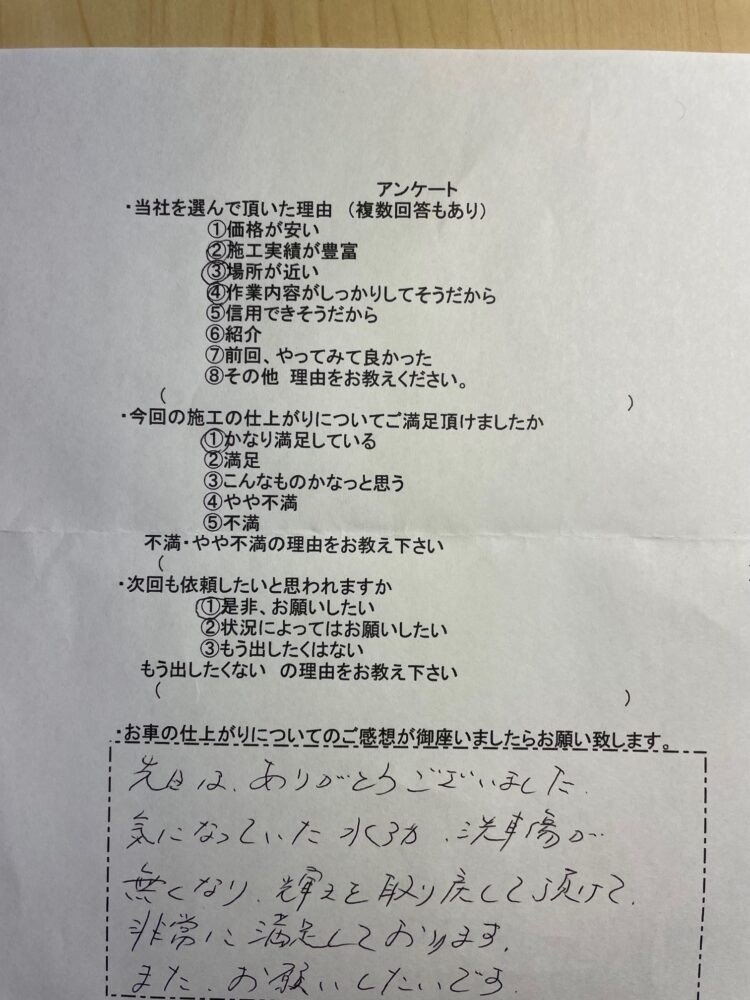 アンケート
・当社を選んで頂いた理由 （複数回答もあり）
①価格が安い
②施工実績が豊富
③場所が近い
④作業内容がしっかりしてそうだから
⑤信用できそうだから
⑥紹介
⑦前回、やってみて良かった
⑧その他 理由をお教えください。
（ ）
・今回の施工の仕上がりについてご満足頂けましたか
①かなり満足している
②満足
③こんなものかなっと思う
④やや不満
⑤不満
不満・やや不満の理由をお教え下さい
（
・次回も依頼したいと思われますか
①是非、お願いしたい
②状況によってはお願いしたい
③もう出したくはない
もう出したくない の理由をお教え下さい
（ ）
・お車の仕上がりについてのご感想が御座いましたらお願い致します。
先日は、ありがとうございました.
気になっていた水くろカ、洗車傷が
無くなり、輝えを取り戻して頂けて、
非常に満足しております。
また、お願いしたいです.